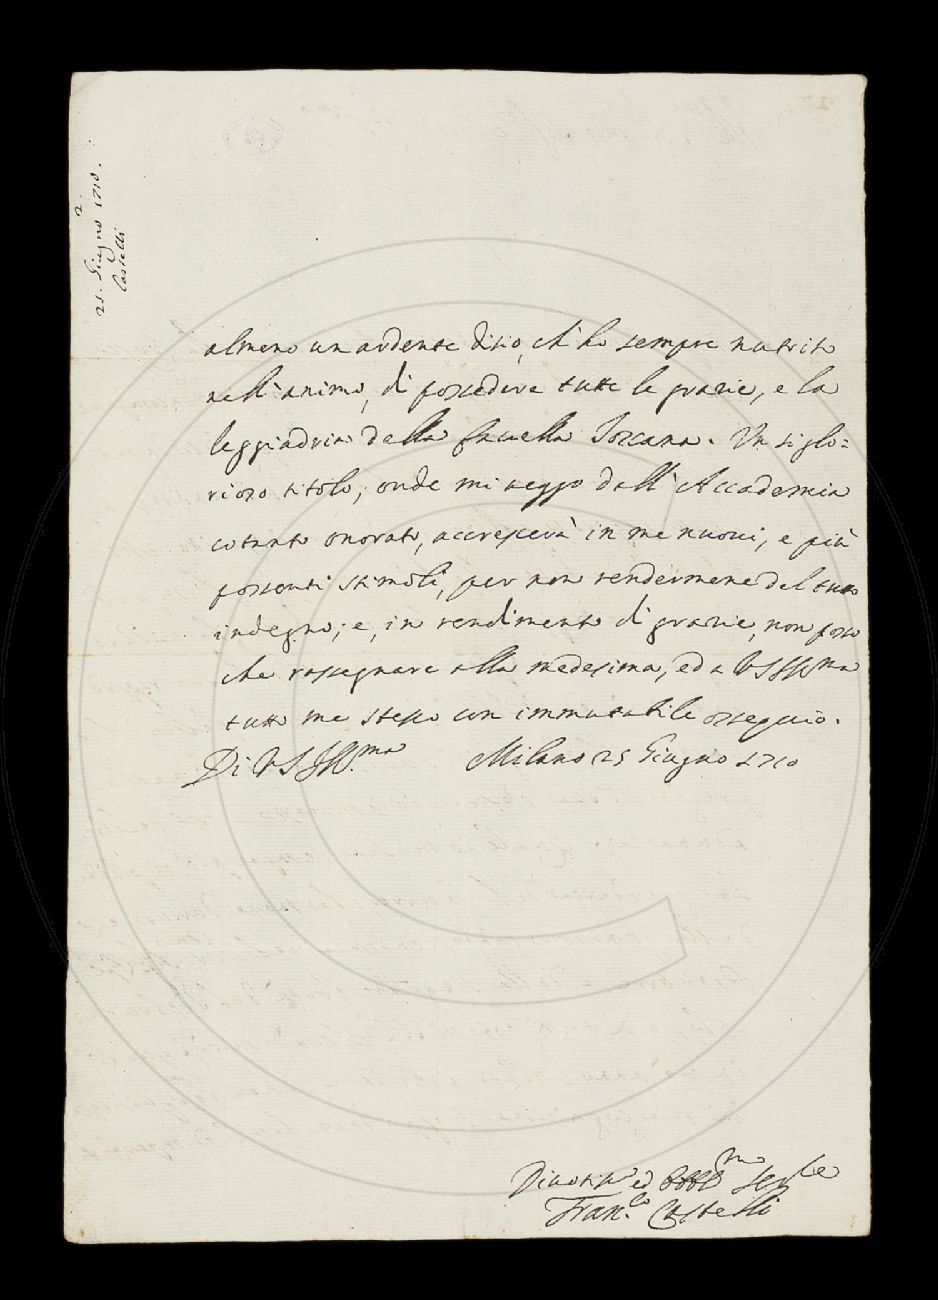 25. Giugno 1710.
2.
Castelli
almeno un ardente disio, ch'ho sempre nutrito
nell'animo, di possedere tutte le grazie, e la
leggiadria della favella Toscana. Un sì glo=
rioso titolo, onde mi veggo dall'Accademia
cotanto onorato, accrescerà in me nuovi, e più
possenti stimoli, per non rendermene del tutto
indegno; e, in rendimento di grazie, non posso
che rassegnare alla medesima, ed a VS Ill.ma
tutto me stesso con immutabile ossequio.
Di VS Ill.ma Milano 25 Giugno 1710
Divotmo ed Obblmo Serv.le
Fran.co Castelli